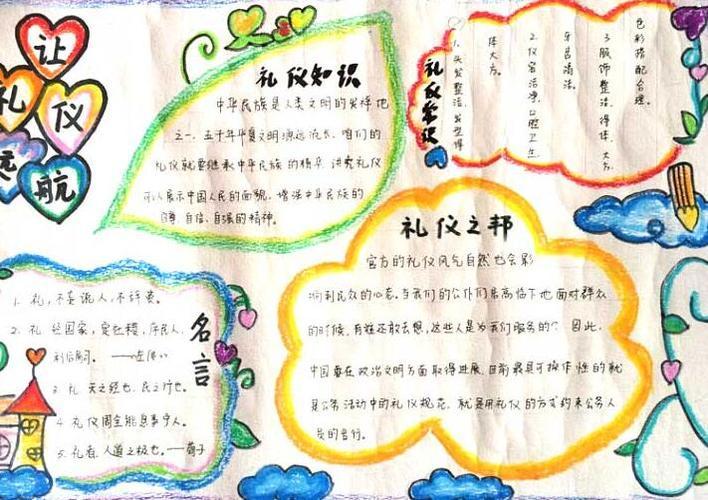 让
礼
仪
远
航
礼仪知识
中华民族是人类文明的发祥地
之一，五千年华夏文明源远流长，咱们的
礼仪就要继承中华民族的精华，讲究礼仪
可以展示中国人民的面貌，增强中华民族的
自尊、自信、自强的精神。
礼仪常识
1、头发整洁、发型得
体大方。
2、仪容洁净、口腔卫生
牙齿清洁。
3、服饰整洁、得体、大方、
色彩搭配合理。
礼仪之邦
官方的礼仪风气自然也会影
响到民众的心态，当我们的公仆们居高临下地面对群众
的时候，有谁还敢去想，这些人是为我们服务的？因此，
中国要在政治文明方面取得进展，目前最具可操作性的就
是公务活动中的礼仪规范，就是用礼仪的方式约束公务人
员的言行。
名言
1、礼，不妄说人，不辞费。
2、礼，经国家，定社稷，序民人，
利后嗣。——《左传》
3、礼，天之经也，民之行也。
4、礼仪周全能息事宁人。
5、礼者，人道之极也。——荀子